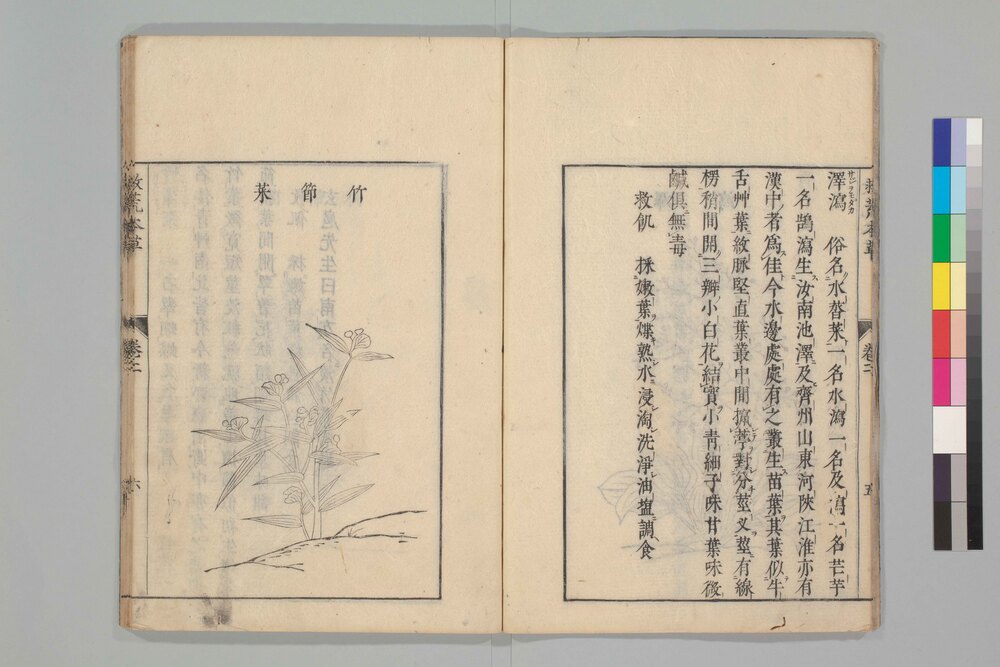 澤瀉 俗名水䓪菜一名水瀉一名及瀉一名芒芋
一名鵠瀉生汝南池澤及齊州山東河陝江淮亦有
漢中者爲佳今水邊處處有之叢生苗葉其葉似牛
舌艸葉紋脉堅直葉叢中間攛葶對分莖叉莖有線
楞稍間開三瓣小白花結實小青細子味甘葉味微
鹹俱無毒
救飢 採嫩葉煠熟水浸淘洗淨油塩調食
救荒本草
卷之二
五
竹節菜
救荒本草
卷之二
六